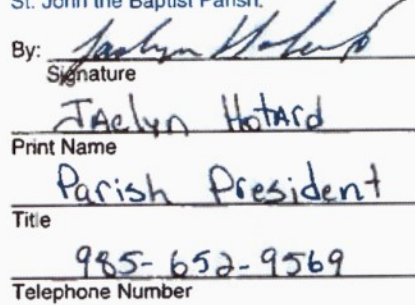 St. John the Baptist Parish.
By: Jaclyn Hotard
Signature
JAclyn HotArd
Print Name
Parish President
Title
985-652-9569
Telephone Number